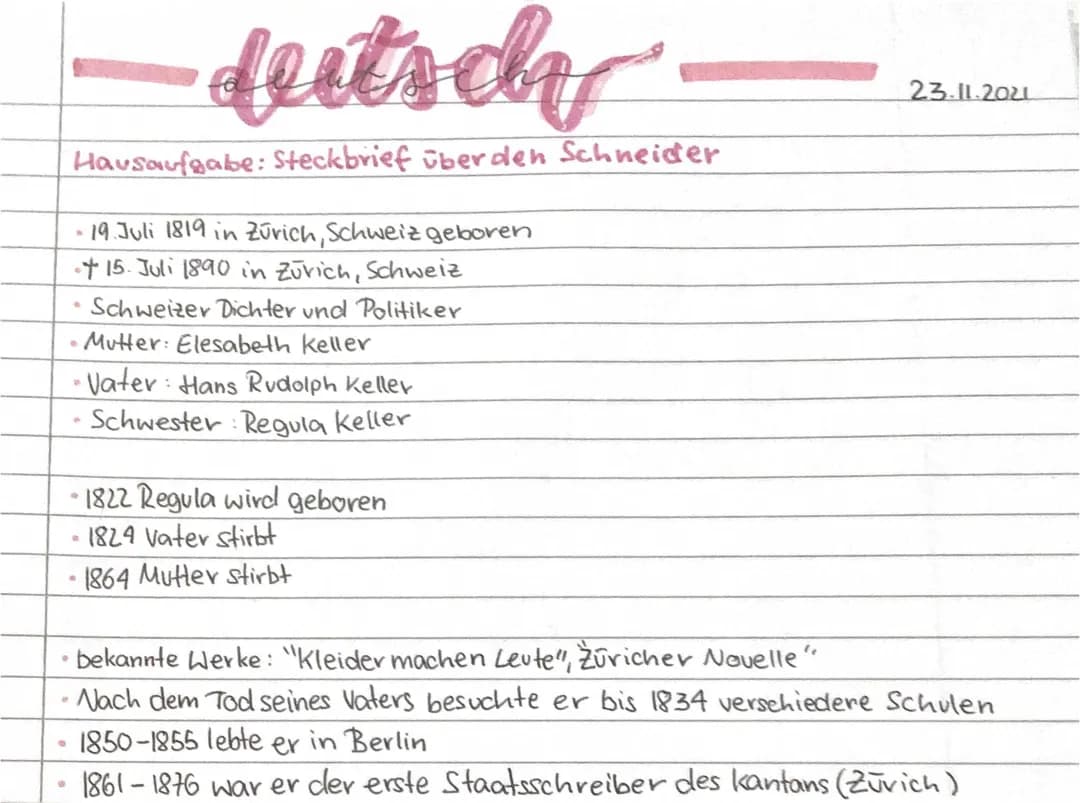 deutsch
23.11.2021
Hausaufgabe: Steckbrief über den Schneider
• 19. Juli 1819 in Zürich, Schweiz geboren
• † 15. Juli 1890 in Zürich, Schweiz
• Schweizer Dichter und Politiker
• Mutter: Elesabeth Keller
• Vater: Hans Rudolph Keller
• Schwester: Regula Keller
• 1822 Regula wird geboren
• 1824 Vater stirbt
• 1864 Mutter stirbt
• bekannte Werke: "Kleider machen Leute", "Züricher Novelle"
• Nach dem Tod seines Vaters besuchte er bis 1834 verschiedere Schulen
• 1850-1855 lebte er in Berlin
• 1861-1876 war er der erste Staatsschreiber des Kantans (Zürich)